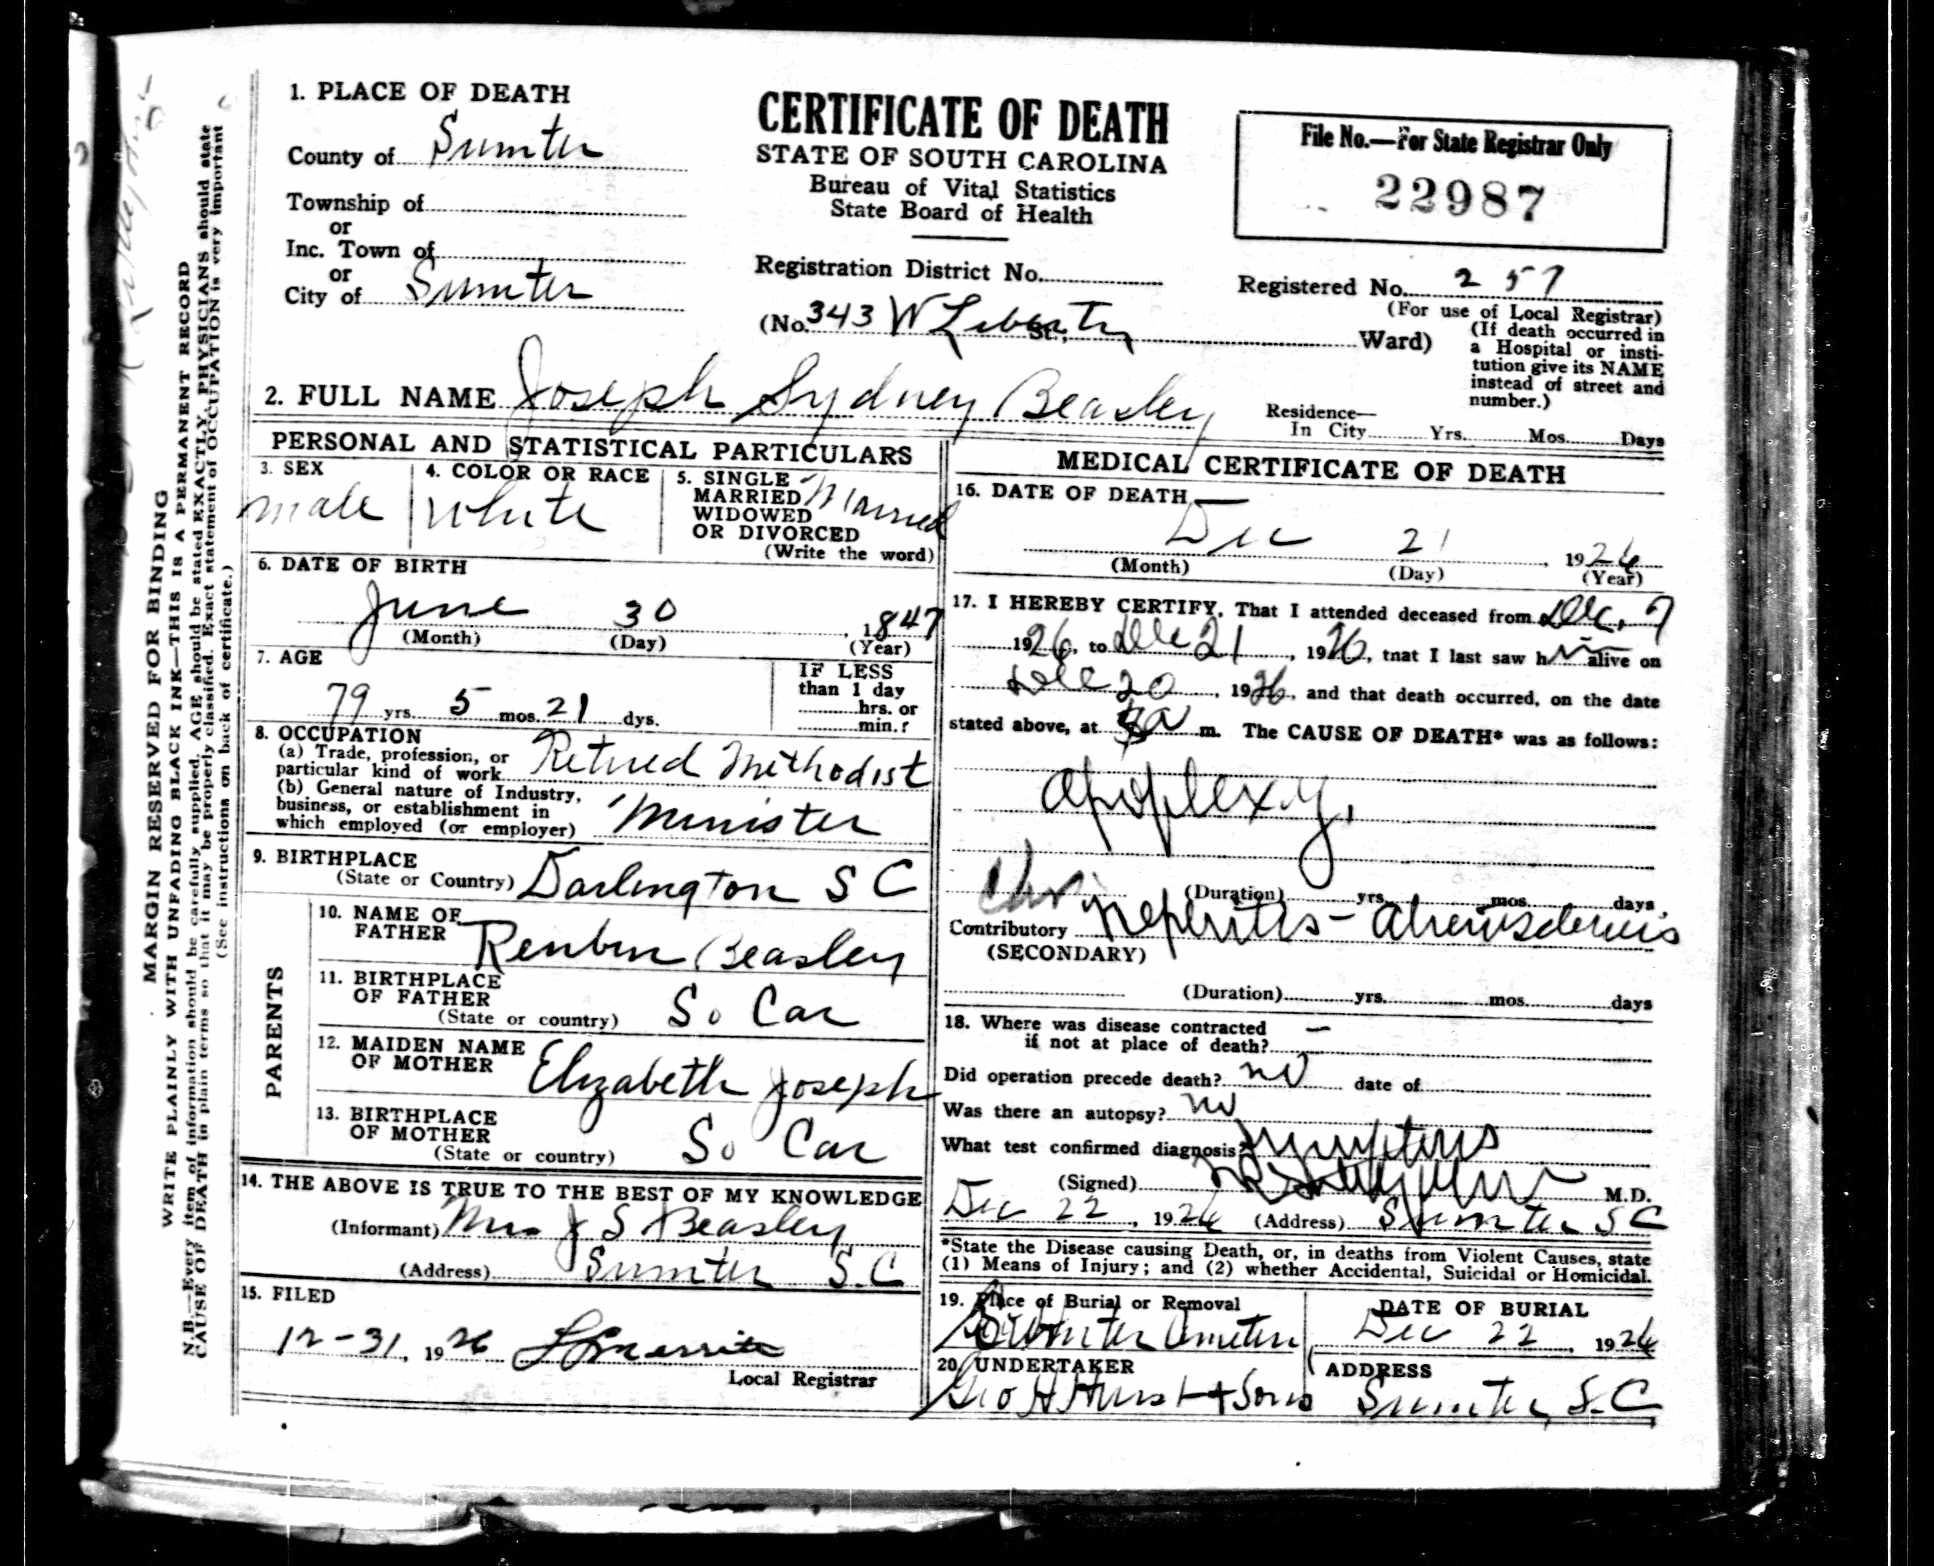 MARGIN RESERVED FOR BINDING
WRITE PLAINLY WITH UNFADING BLACK INK—THIS IS A PERMANENT RECORD
N.B.—Every item of information should be carefully supplied. AGE should be stated EXACTLY. PHYSICIANS should state
CAUSE OF DEATH in plain terms so that it may be properly classified. Exact statement of OCCUPATION is very important
(See instructions on back of certificate.)
1. PLACE OF DEATH
County of Sumter
Township of
or
Inc. Town of
or
City of Sumter
CERTIFICATE OF DEATH
STATE OF SOUTH CAROLINA
Bureau of Vital Statistics
State Board of Health
Registration District No.
(No. 343 W Liberty St., Ward)
File No.—For State Registrar Only
22987
Registered No. 257
(For use of Local Registrar)
(If death occurred in
a Hospital or insti-
tution give its NAME
instead of street and
number.)
2. FULL NAME Joseph Sydney Beasley
Residence—
In City Yrs. Mos. Days
PERSONAL AND STATISTICAL PARTICULARS
3. SEX
male
4. COLOR OR RACE
White
5. SINGLE
MARRIED
WIDOWED
OR DIVORCED
(Write the word)
Married
6. DATE OF BIRTH
June 30, 1847
(Month) (Day) (Year)
7. AGE
79 yrs. 5 mos. 21 dys.
IF LESS
than 1 day
hrs. or
min.?
8. OCCUPATION
(a) Trade, profession, or
particular kind of work Retired Methodist
(b) General nature of Industry,
business, or establishment in
which employed (or employer) Minister
9. BIRTHPLACE
(State or Country) Darlington S C
PARENTS
10. NAME OF
FATHER Reuben Beasley
11. BIRTHPLACE
OF FATHER
(State or country) So Car
12. MAIDEN NAME
OF MOTHER Elizabeth Joseph
13. BIRTHPLACE
OF MOTHER
(State or country) So Car
14. THE ABOVE IS TRUE TO THE BEST OF MY KNOWLEDGE
(Informant) Mrs J S Beasley
(Address) Sumter S.C
15. FILED
12-31, 1926
Local Registrar
MEDICAL CERTIFICATE OF DEATH
16. DATE OF DEATH
Dec 21, 1926
(Month) (Day) (Year)
17. I HEREBY CERTIFY, That I attended deceased from Dec. 7
1926, to Dec 21, 1926, that I last saw him alive on
Dec 20, 1926, and that death occurred, on the date
stated above, at m. The CAUSE OF DEATH* was as follows:
apoplexy.
(Duration) yrs. mos. days
Contributory Chr. nephritis - Arteriosclerosis
(SECONDARY)
(Duration) yrs. mos. days
18. Where was disease contracted
if not at place of death? —
Did operation precede death? no date of
Was there an autopsy? no
What test confirmed diagnosis? symptoms
(Signed) M.D.
Dec 22, 1926 (Address) Sumter S C
*State the Disease causing Death, or, in deaths from Violent Causes, state
(1) Means of Injury; and (2) whether Accidental, Suicidal or Homicidal.
19. Place of Burial or Removal
Sumter Cemetery
DATE OF BURIAL
Dec 22, 1926
20. UNDERTAKER
Geo H Hurst + Sons
ADDRESS
Sumter, S.C